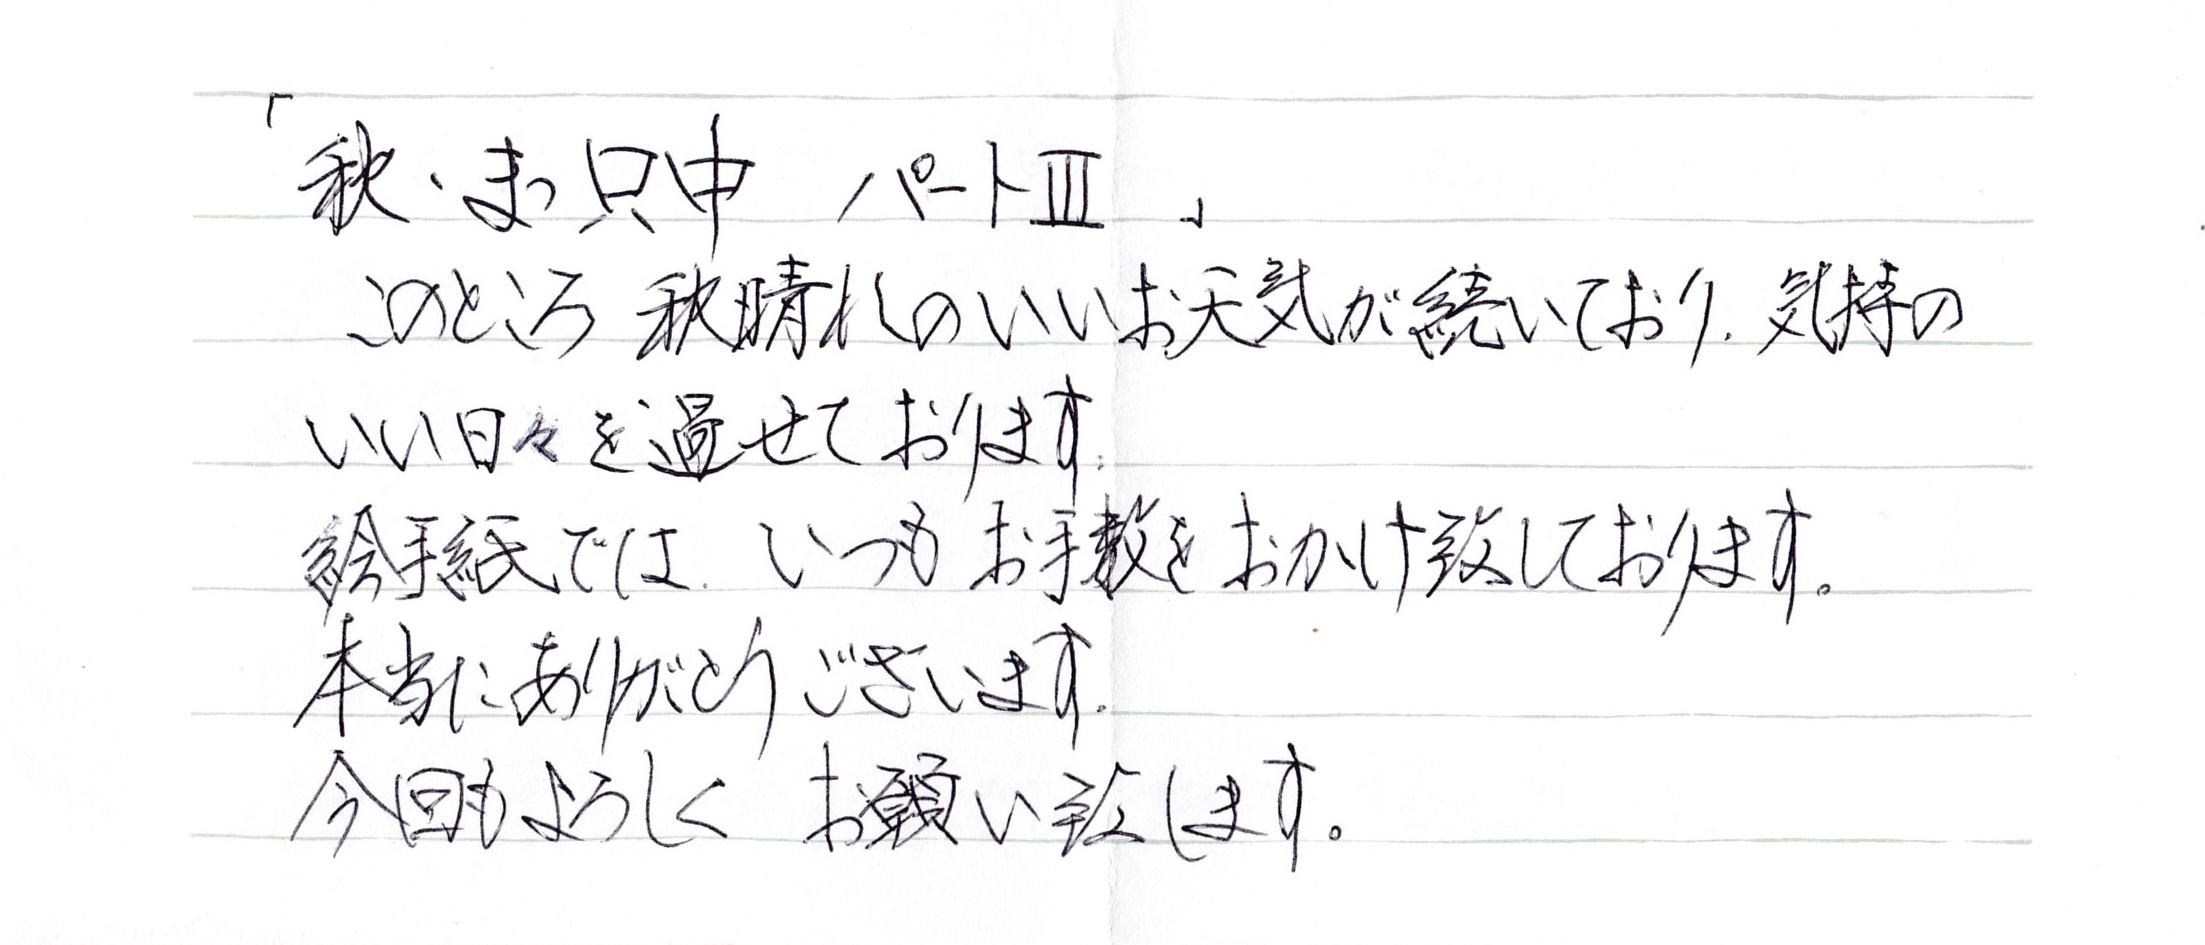 「秋・まっ只中　パートⅢ　」
このところ 秋晴れのいいお天気が続いており、気持の
いい日々を過せております。
絵手紙では、いつも お手数をおかけ致しております。
本当にありがとう ございます。
今回もよろしく　お願い致します。